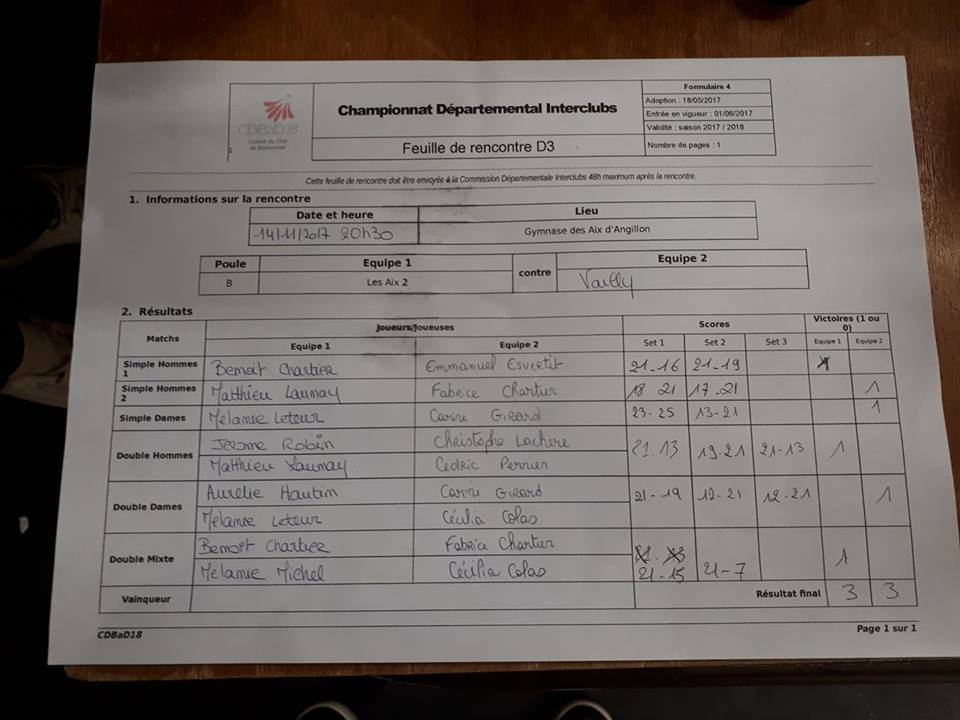 CDBaD18
Comité du Cher
de Badminton
Championnat Départemental Interclubs
Feuille de rencontre D3
Formulaire 4
Adoption : 18/05/2017
Entrée en vigueur : 01/06/2017
Validité : saison 2017 / 2018
Nombre de pages : 1
Cette feuille de rencontre doit être envoyée à la Commission Départementale Interclubs 48h maximum après la rencontre.
1. Informations sur la rencontre
Date et heure Lieu
14/11/2017 20h30 Gymnase des Aix d'Angillon
Poule Equipe 1 contre Equipe 2
B Les Aix 2 Vailly
2. Résultats
Matchs Joueurs/Joueuses Scores Victoires (1 ou 0)
Equipe 1 Equipe 2 Set 1 Set 2 Set 3 Equipe 1 Equipe 2
Simple Hommes 1 Benoit Chartier Emmanuel 21-16 21-19 1
Simple Hommes 2 Matthieu Launay Fabrice Chartier 18 21 17-21 1
Simple Dames Mélanie Leteur Carine GIRARD 23-25 13-21 1
Double Hommes Jérome Robin Christophe Lachere 21.13 19-21 21-13 1
Matthieu Launay Cédric Perrier
Double Dames Aurélie Hautin Carine GIRARD 21-19 12-21 12-21 1
Mélanie Leteur Cécilia Colas
Double Mixte Benoît Chartier Fabrice Chartier 1
Mélamie Michel Cécilia Colas 21-15 21-7
Vainqueur Résultat final 3 3
CDBaD18 Page 1 sur 1